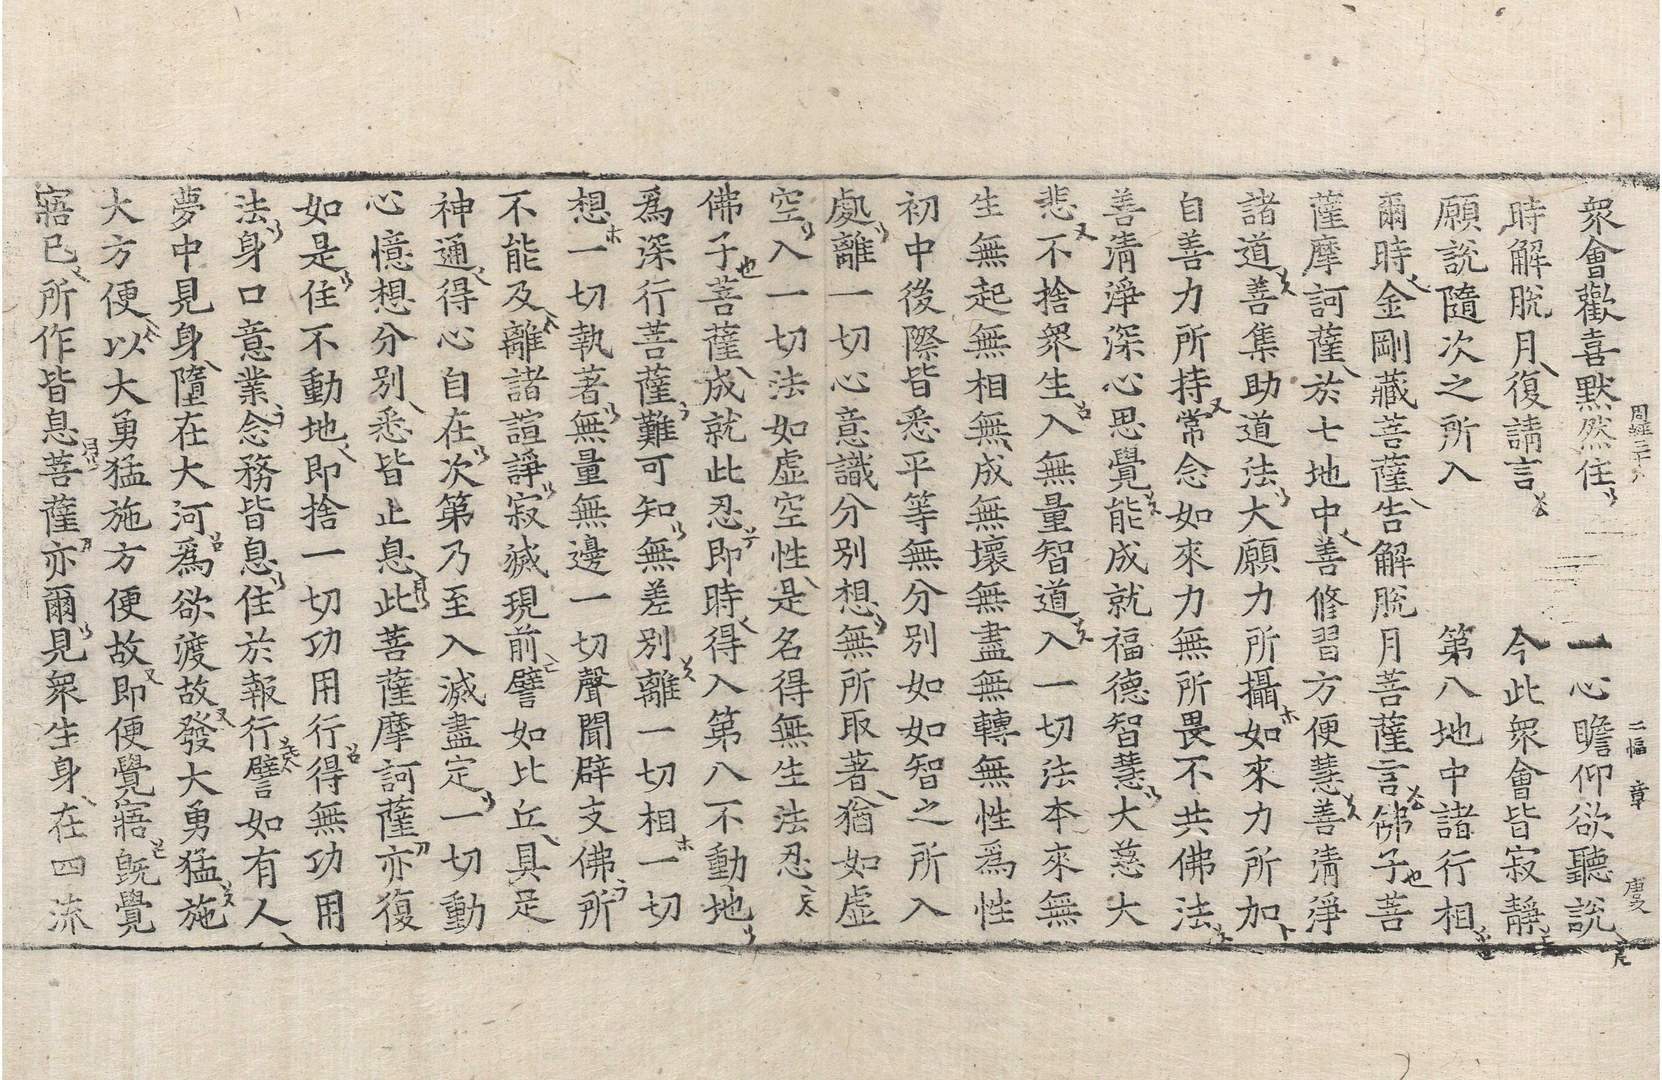 衆會歡喜默然住 一心瞻仰欲聽說
時解脫月復請言 今此衆會皆寂靜
願說隨次之所入 第八地中諸行相
爾時金剛藏菩薩告解脫月菩薩言佛子菩
薩摩訶薩於七地中善修習方便慧善清淨
諸道善集助道法大願力所攝如來力所加
自善力所持常念如來力無所畏不共佛法
善清淨深心思覺能成就福德智慧大慈大
悲不捨衆生入無量智道入一切法本來無
生無起無相無成無壞無盡無轉無性爲性
初中後際皆悉平等無分別如如智之所入
處離一切心意識分別想無所取著猶如虛
空入一切法如虛空性是名得無生法忍
佛子菩薩成就此忍即時得入第八不動地
爲深行菩薩難可知無差別離一切相一切
想一切執著無量無邊一切聲聞辟支佛所
不能及離諸諠諍寂滅現前譬如比丘具足
神通得心自在次第乃至入滅盡定一切動
心憶想分別悉皆止息此菩薩摩訶薩亦復
如是住不動地即捨一切功用行得無功用
法身口意業念務皆息住於報行譬如有人
夢中見身墮在大河爲欲渡故發大勇猛施
大方便以大勇猛施方便故即便覺寤旣覺
寤已所作皆息菩薩亦爾見衆生身在四流